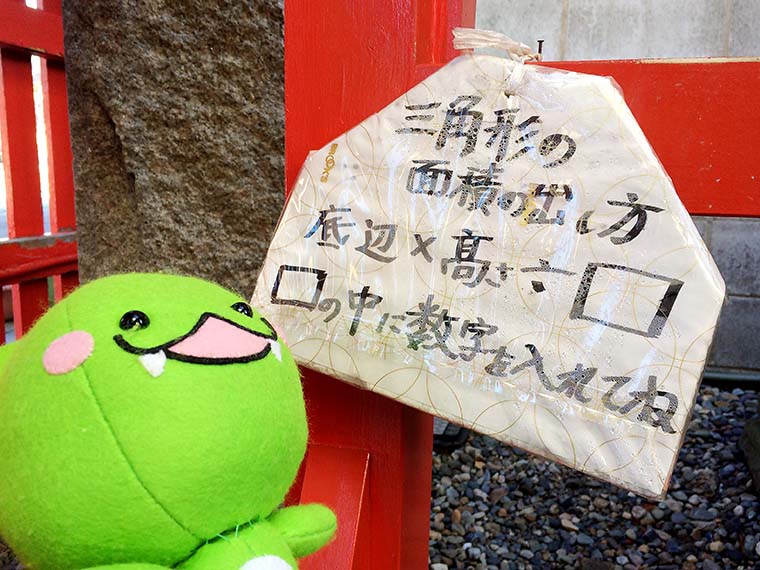 三角形の
面積の出し方
底辺×高さ÷□
□の中に数字を入れてね